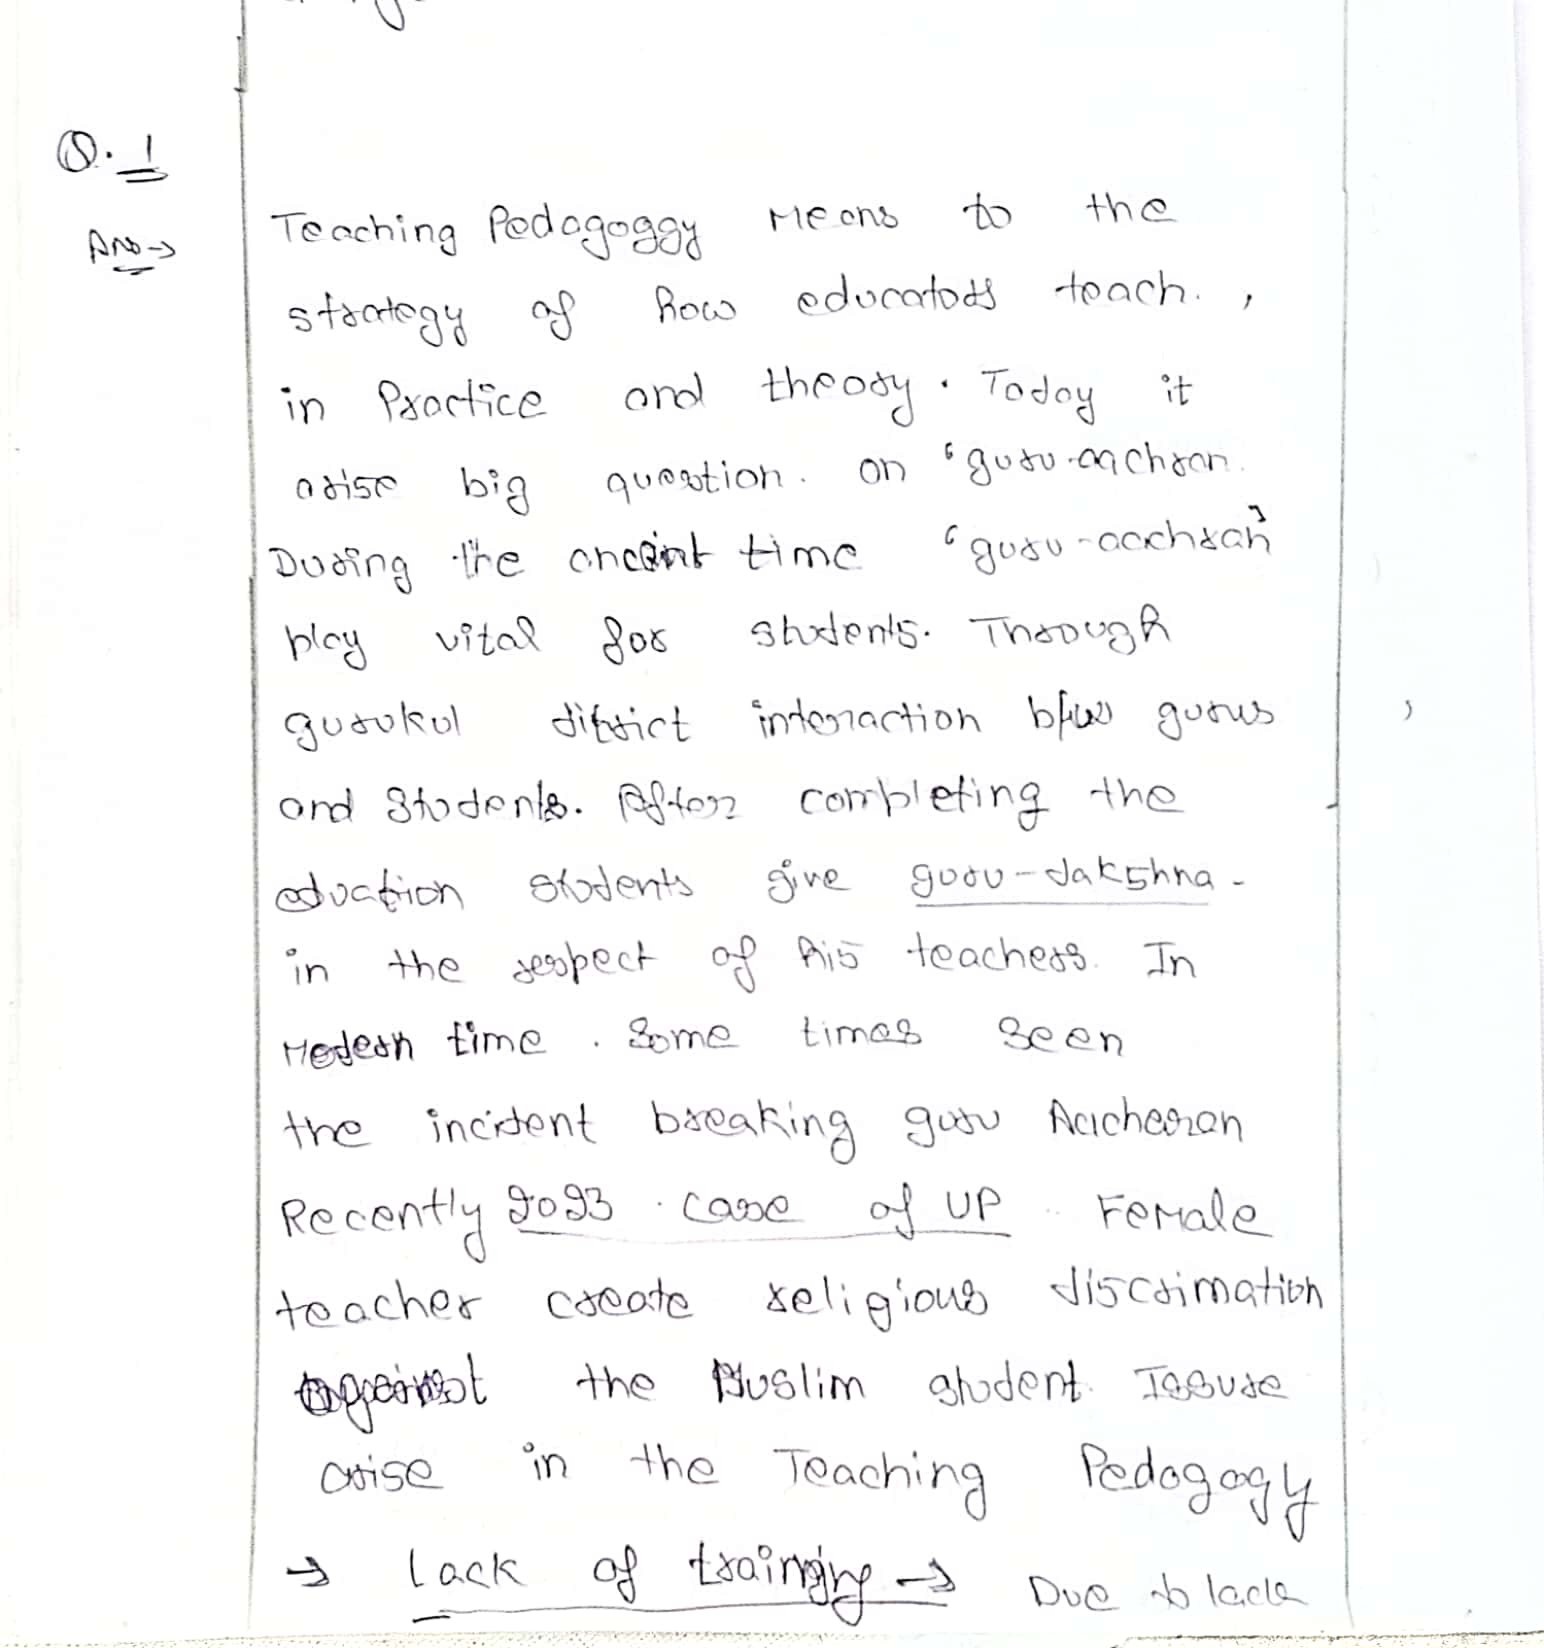 Q. 1
Ans → Teaching Pedagoggy Means to the
strategy of how educators teach. ,
in Practice and theory. Today it
arise big question. on "guru-aachran.
During the ancent time "guru-aachran"
play vital for students. Through
gurukul ditrict interaction b/w gurus
and Students. After completing the
education students give guru-dakshna -
in the respect of his teachers. In
Modern time. Some times seen
the incident breaking guru Aacheran
Recently 2023 . case of UP .. Female
teacher create religious discrimation
against the Muslim student. Issuse
arise in the Teaching Pedagogy
→ Lack of training → Due to lack